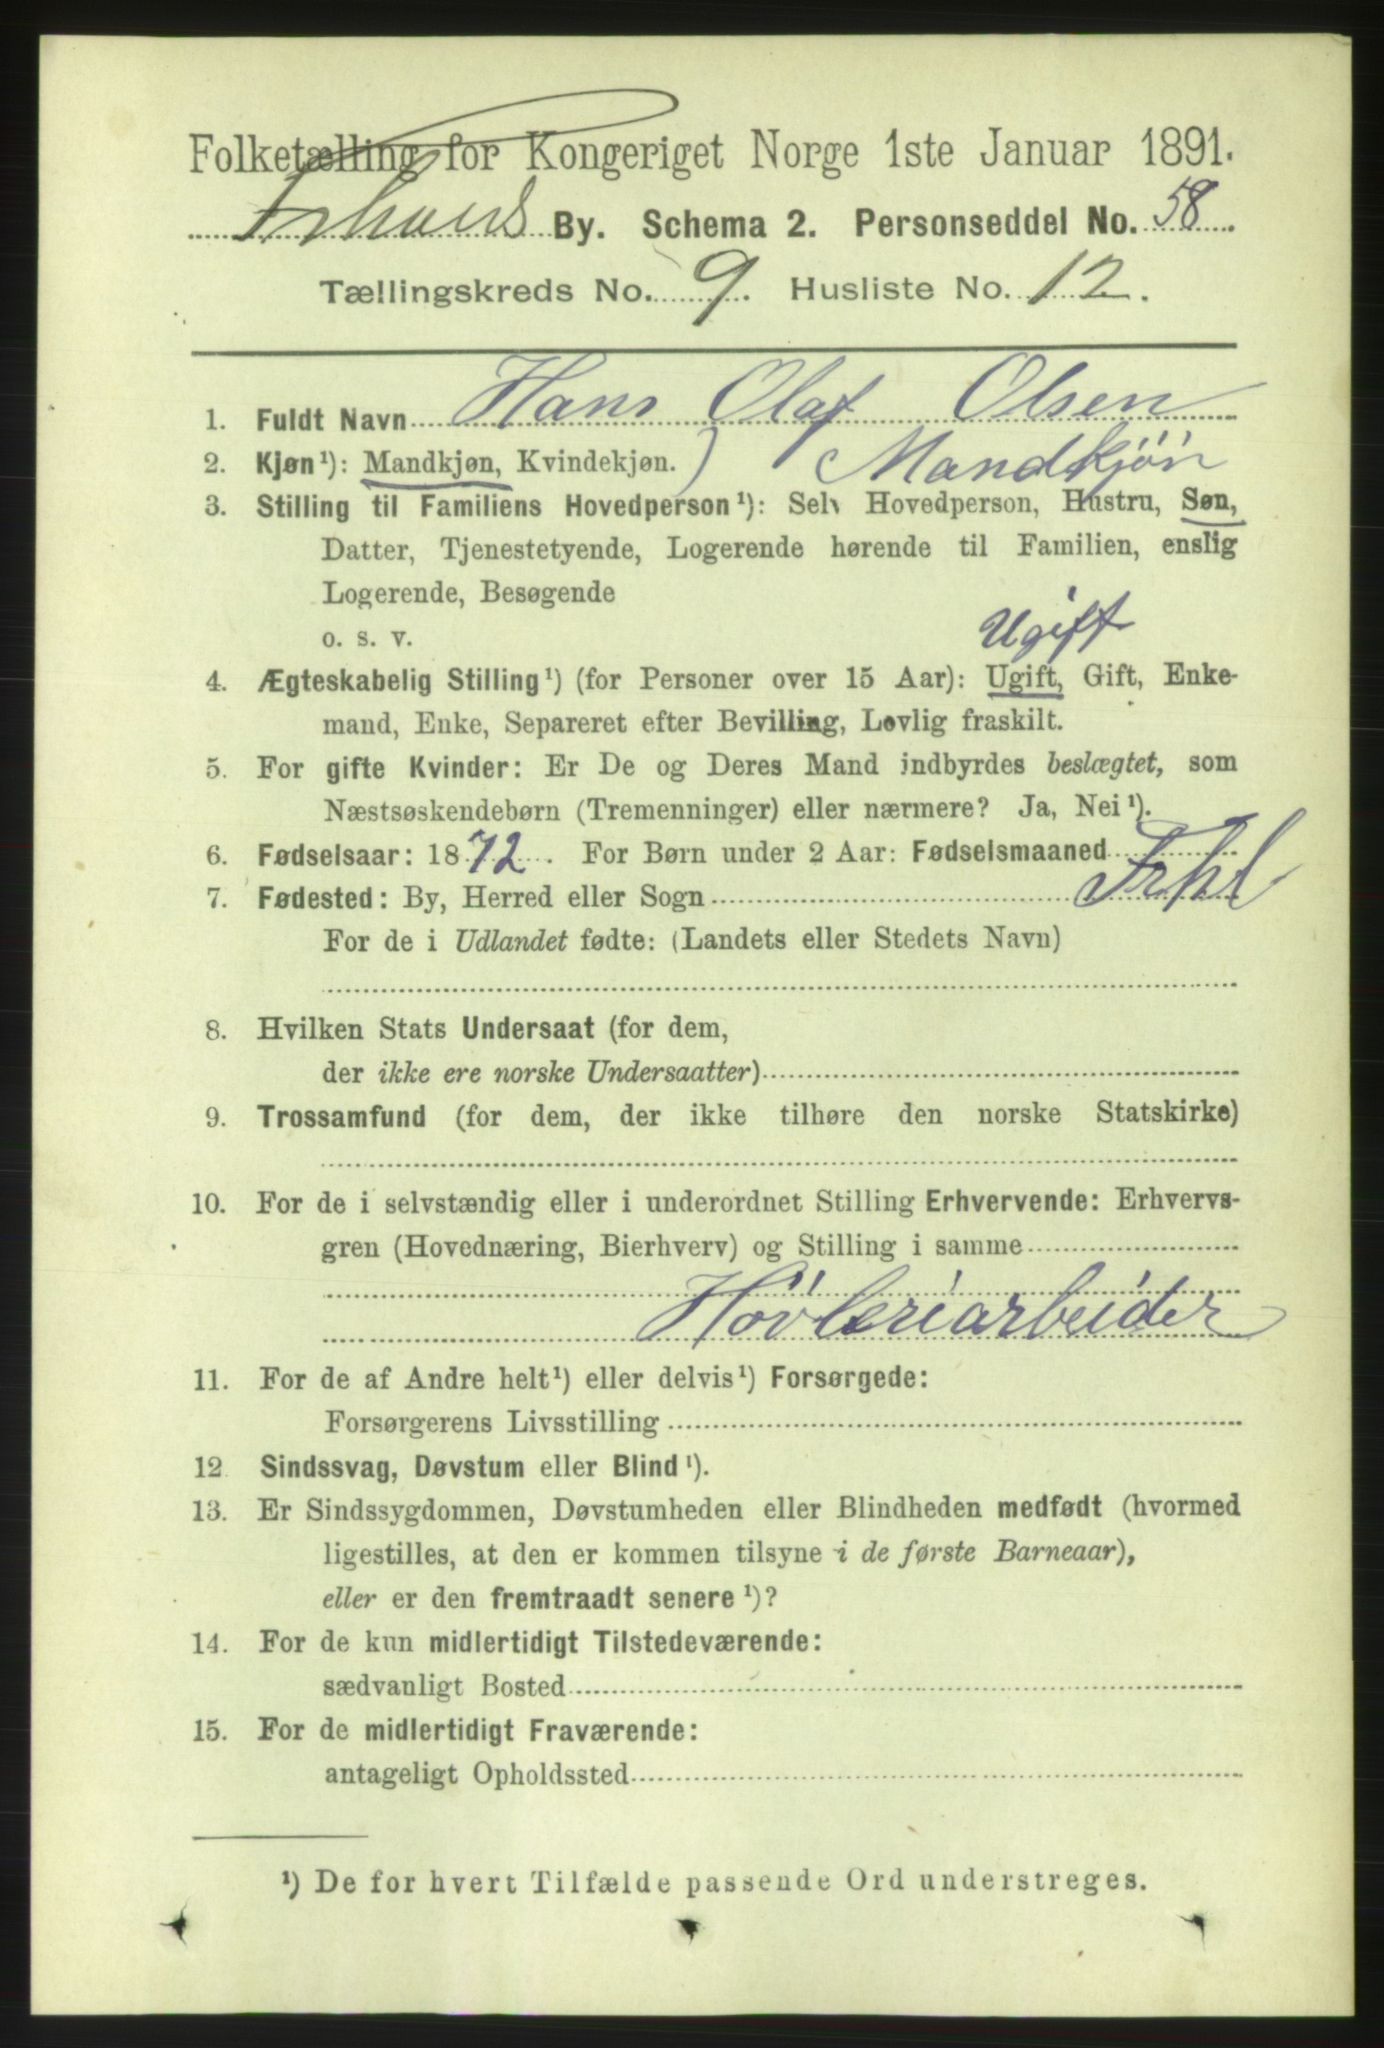 Folketælling for Kongeriget Norge 1ste Januar 1891.
Frhald By. Schema 2. Personseddel No. 58.
Tællingskreds No. 9. Husliste No. 12.
1. Fuldt Navn Hans Olaf Olsen
2. Kjøn¹): Mandkjøn, Kvindekjøn. ) Mandkjön
3. Stilling til Familiens Hovedperson¹): Selv Hovedperson, Hustru, Søn,
Datter, Tjenestetyende, Logerende hørende til Familien, enslig
Logerende, Besøgende
o. s. v.
Ugift
4. Ægteskabelig Stilling¹) (for Personer over 15 Aar): Ugift, Gift, Enke-
mand, Enke, Separeret efter Bevilling, Lovlig fraskilt.
5. For gifte Kvinder: Er De og Deres Mand indbyrdes beslægtet, som
Næstsøskendebørn (Tremenninger) eller nærmere? Ja, Nei¹).
6. Fødselsaar: 1872. For Børn under 2 Aar: Fødselsmaaned
7. Fødested: By, Herred eller Sogn Frhl
For de i Udlandet fødte: (Landets eller Stedets Navn)
8. Hvilken Stats Undersaat (for dem,
der ikke ere norske Undersaatter)
9. Trossamfund (for dem, der ikke tilhøre den norske Statskirke)
10. For de i selvstændig eller i underordnet Stilling Erhvervende: Erhvervs-
gren (Hovednæring, Bierhverv) og Stilling i samme
Hövleriarbeider
11. For de af Andre helt¹) eller delvis¹) Forsørgede:
Forsørgerens Livsstilling
12. Sindssvag, Døvstum eller Blind¹).
13. Er Sindssygdommen, Døvstumheden eller Blindheden medfødt (hvormed
ligestilles, at den er kommen tilsyne i de første Barneaar),
eller er den fremtraadt senere¹)?
14. For de kun midlertidigt Tilstedeværende:
sædvanligt Bosted
15. For de midlertidigt Fraværende:
antageligt Opholdssted
¹) De for hvert Tilfælde passende Ord understreges.